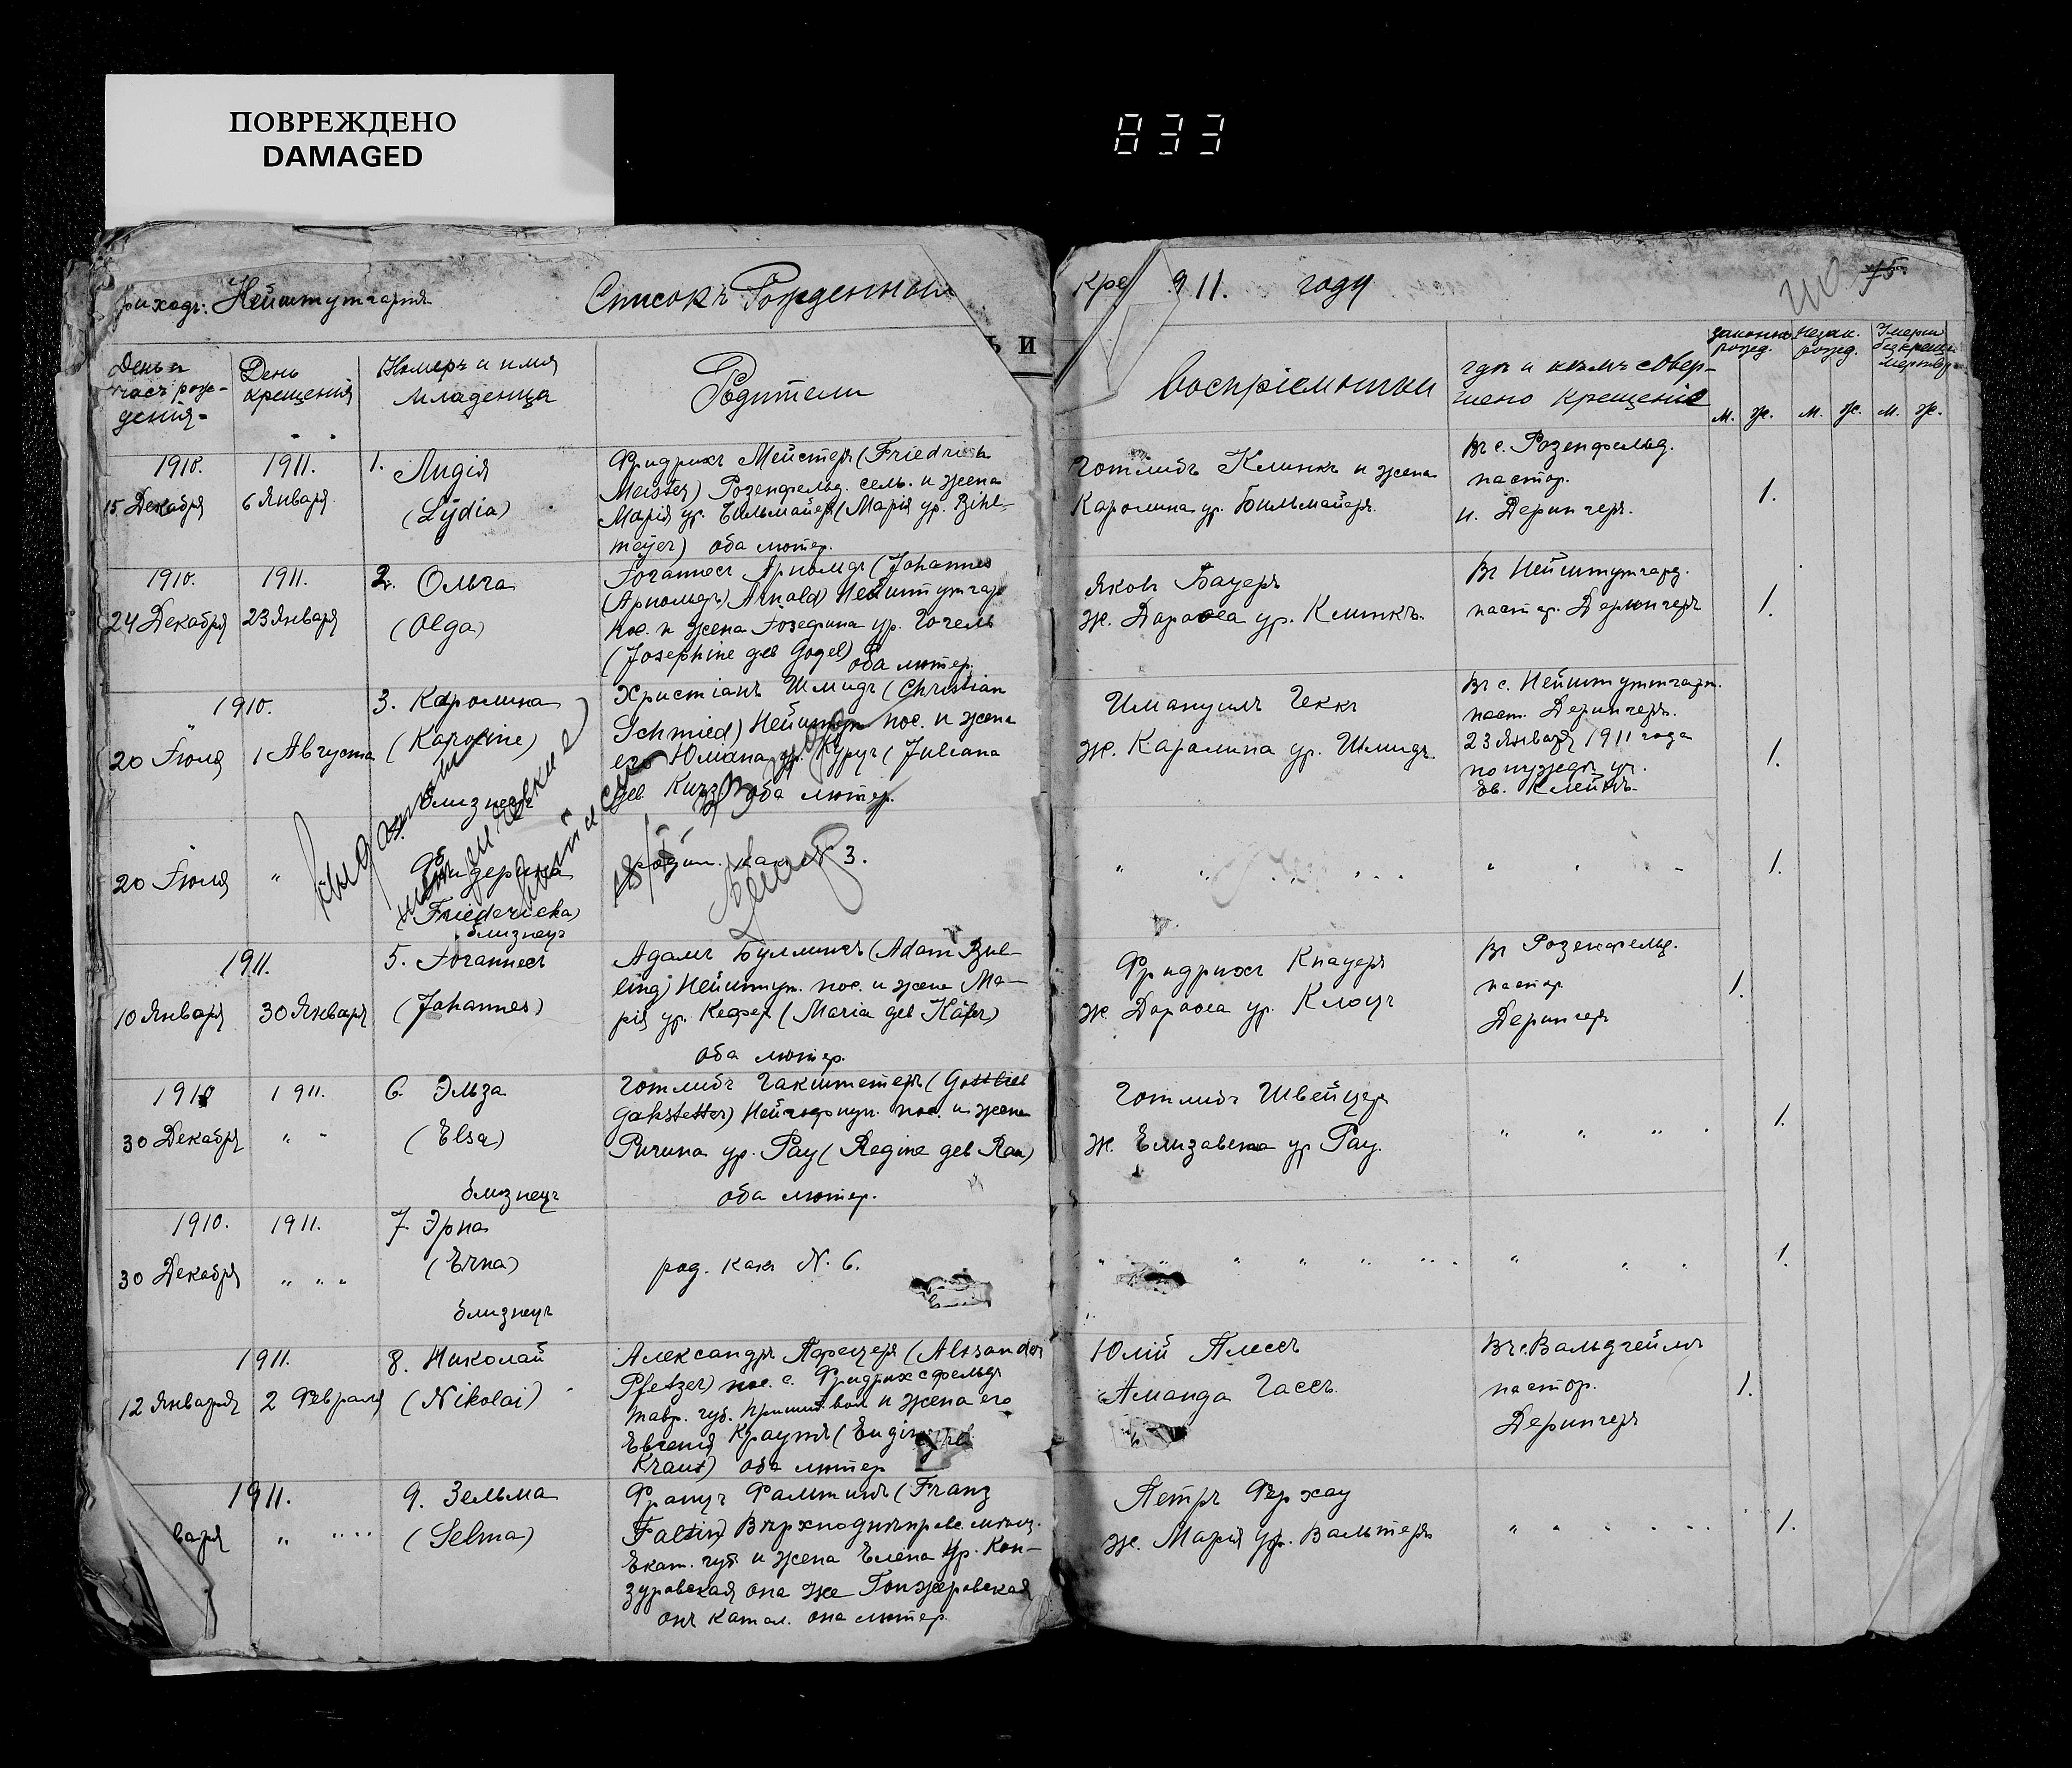 ПОВРЕЖДЕНО
DAMAGED
833
риходъ: Нейштутгартъ
Списокъ Рожденныхъ
Кре 911. году
75
ъ и
День и часъ рож-
дения
День
крещенія
Номеръ и имя
Младенца
Родители
Воспріемники
гдѣ и кѣмъ совер-
шено крещеніе
законно рожд.
незак. рожд.
М. Ж. М. Ж. М. Ж.
1910.
15 Декабря
1911.
6 Января
1. Лидія
(Lydia)
Фридрихъ Мейстеръ (Friedrich
Meister) Розенфельд. сель. и жена
Марія ур. Бильмайеръ (Марія ур. Bihl-
meyer) оба лютер.
Готлибъ Клинкъ и жена
Каролина ур. Бильмайеръ.
Въ с. Розенфельд.
пастор.
И. Дерингеръ.
1.
1910.
24 Декабря
1911.
23 Января
2. Ольга
(Olga)
Іоганнесъ Арнольдъ (Johannes
(Арнольдъ) Arnold) Нейштутгар
пос. и жена Іозефина ур. Гогель
(Josephine geb Gogel) оба лютер.
Яковъ Бауеръ
ж. Доротеа ур. Клинкъ.
Въ Нейштутгард.
пастор. Дерингеръ
1.
1910.
20 Іюля
1 Августа
3. Каролина
(Karoline)
близнецъ
Христіанъ Шмидъ (Christian
Schmied) Нейштут пос. и жена
его Юліана ур. Куруч (Juliana
geb Kurz) оба лютер.
Имануилъ Гекк
ж. Каролина ур. Шмидъ
Въ с. Нейштуттгарт.
паст. Дерингеръ.
23 Января 1911 года
по нуждѣ уч.
Ев. Клейнъ.
1.
20 Іюля
"
Фридерика
(Friedericka)
близнецъ
родит. какъ N 3.
1.
1911.
10 Января
30 Января
5. Іоганнесъ
(Johannes)
Адамъ Буллингъ (Adam Bul-
ling) Нейштут. пос. и жена Ма-
рія ур. Кефер (Maria geb Käfer)
оба лютер.
Фридрихъ Кнауеръ
ж. Доротеа ур. Клоуг
Въ Розенфельд.
пастор
Дерингеръ
1.
1910
30 Декабря
1911.
" "
6. Эльза
(Elsa)
близнецъ
Готлибъ Гакштетеръ (Gottlieb
Gakstetter) Нейгофнун. пос. и жена
Регина ур. Рау (Regine geb Rau)
оба лютер.
Готлибъ Швейцер
ж. Елизавета ур Рау.
" " "
1.
1910.
30 Декабря
1911.
" " "
7. Эрна
(Erna)
близнецъ
род. какъ N. 6.
1.
1911.
12 Января
2 Февраля
8. Николай
(Nikolai)
Александръ Пфецеръ (Alexander
Pfetzer) пос. с. Фридрихсфельдъ
Тавр. губ. Пришиб. вол и жена его
Евгенія Краутъ (
Kraut) оба лютер
Юлій Плессъ
Аманда Гассъ
Въ с. Вальдгеймъ
пастор.
Дерингеръ
1.
1911.
варя
" "
9. Зельма
(Selma)
Францъ Фалтинъ (Franz
Faltin) Верхнеднѣпров. мѣщ.
Екат. губ. и жена Елена ур. Кон-
зуровская она же Гонжаровская
онъ катол. она лютер.
Петръ Ферхау
ж. Марія ур. Вальтеръ
1.